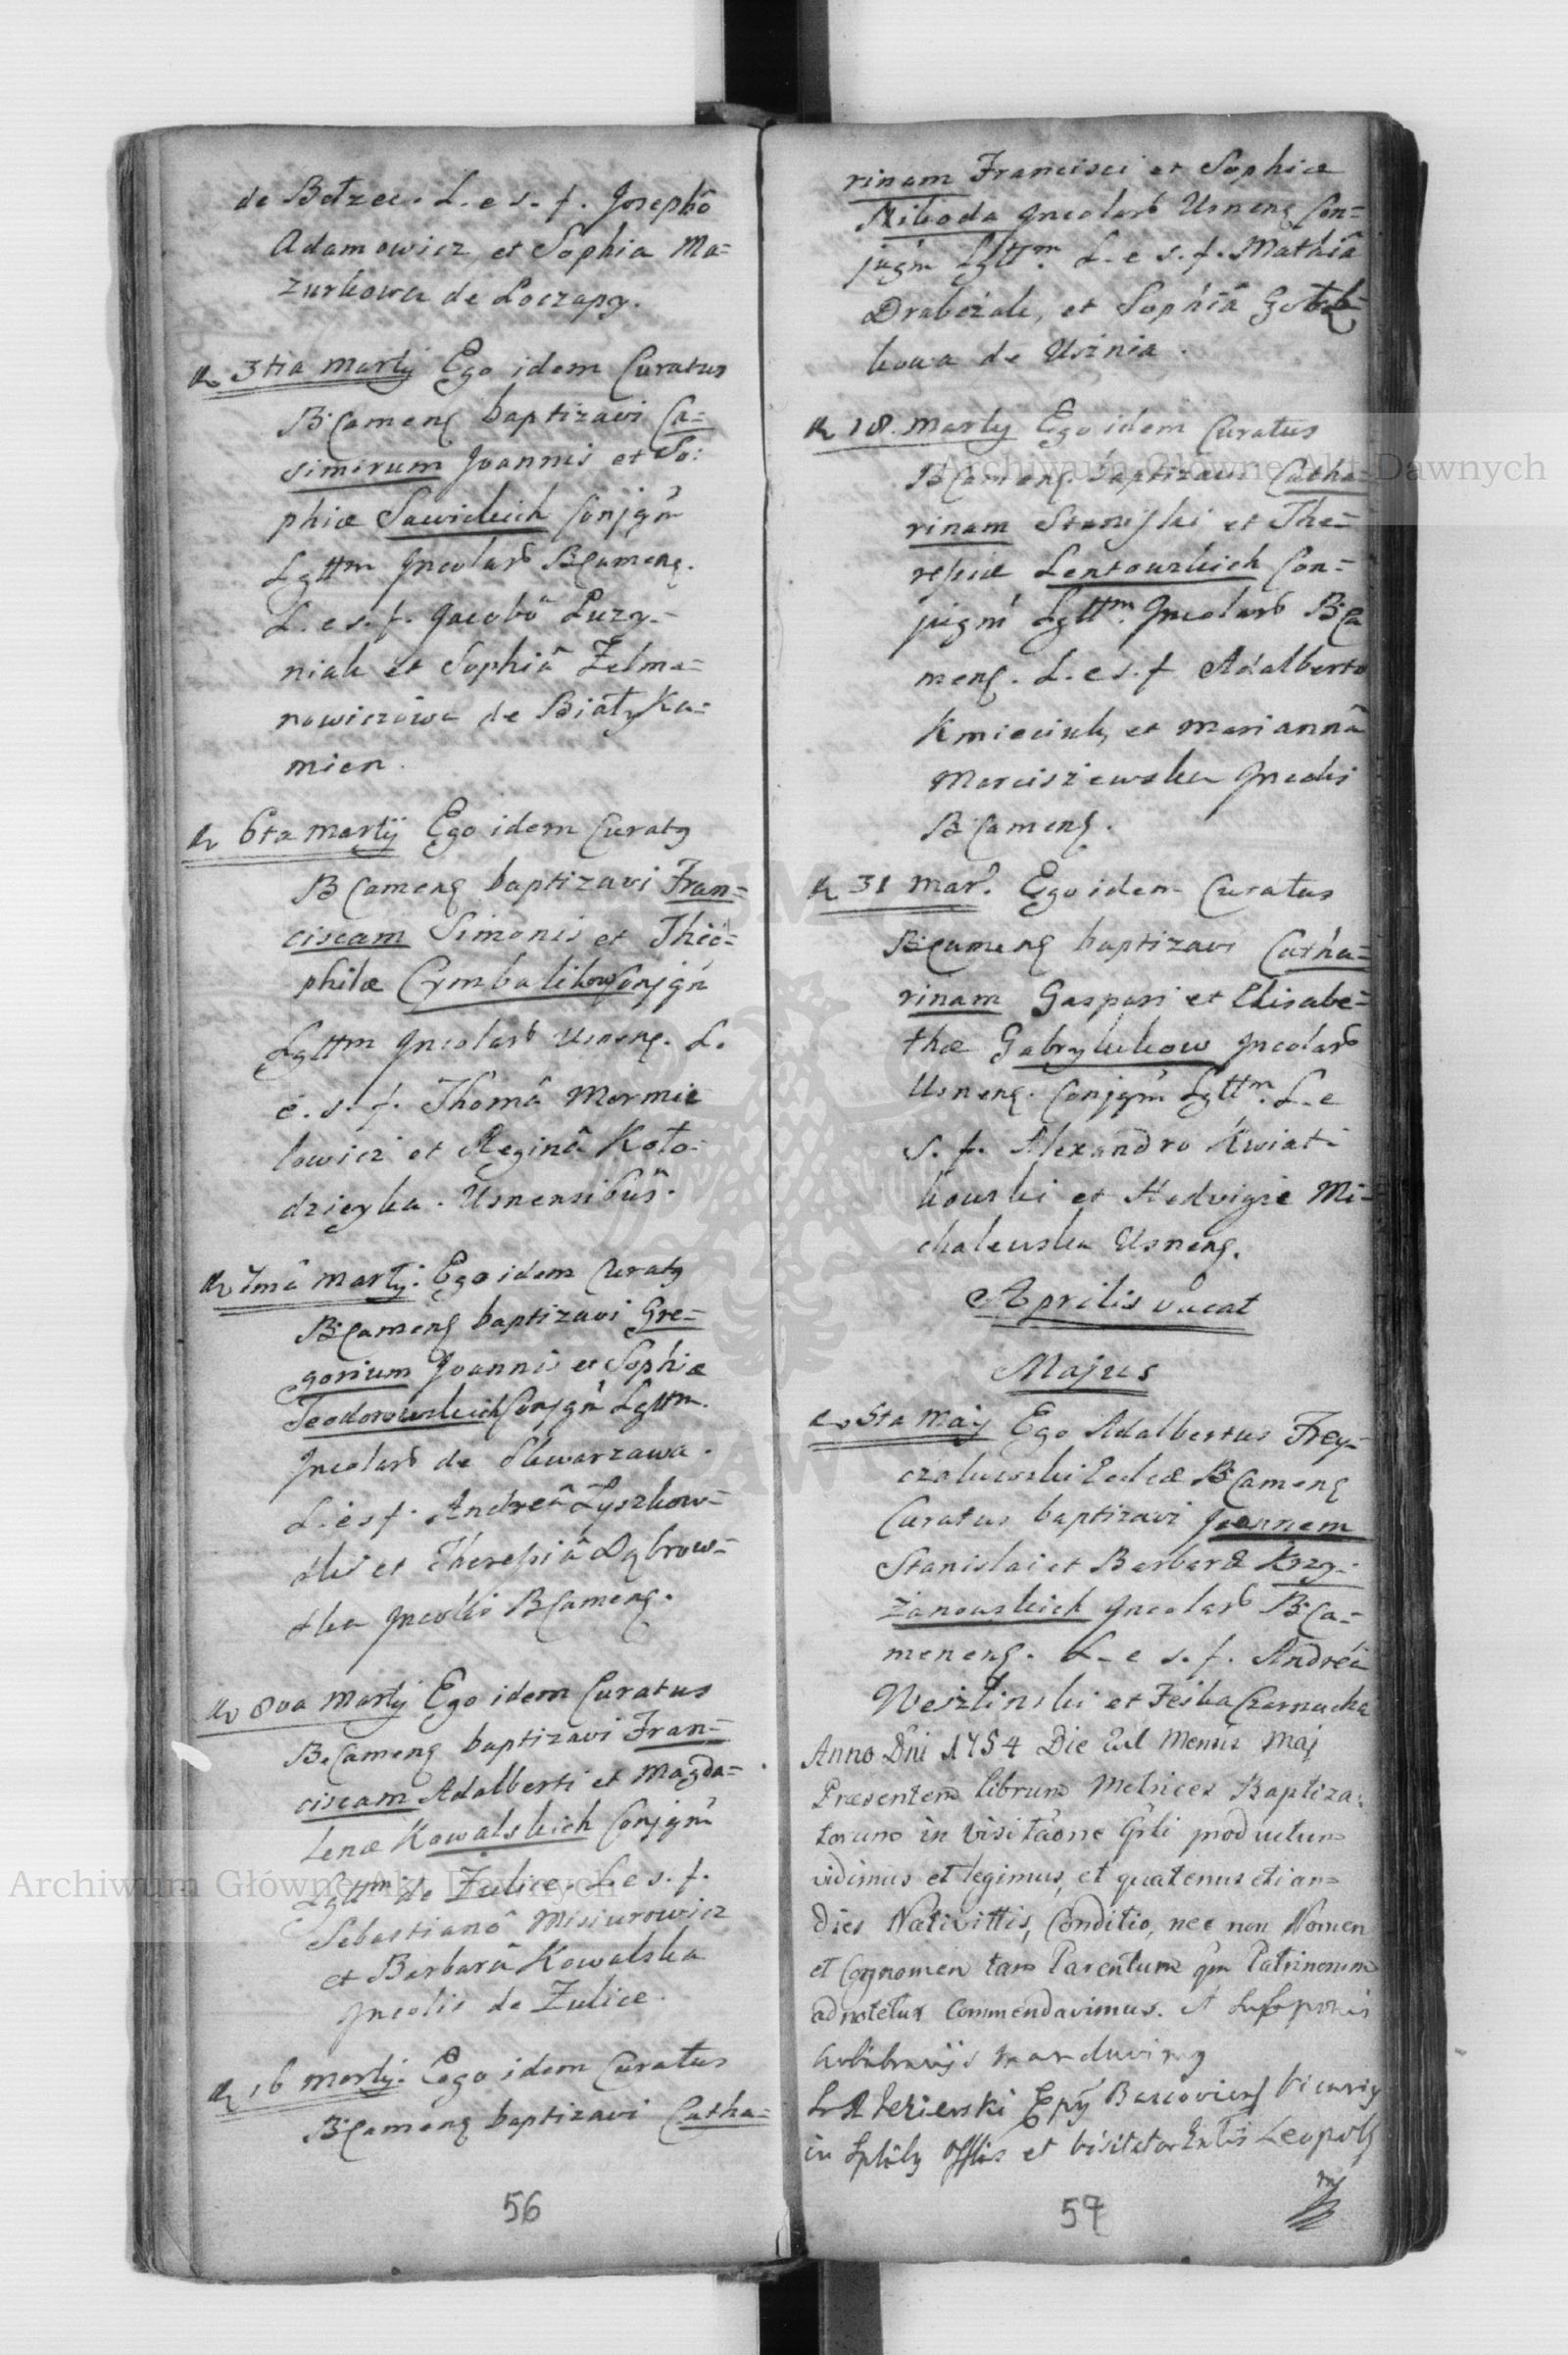 de Bełzec. L. e s. f. Josephô
Adamowicz, et Sophia Ma=
zurkowa de Loczapy.
3tia Martij Ego idem Curatus
BCameng baptizavi Ca=
simirum Joannis et So:
phiæ Sawickich Conjgm̃
Lgttm Incolarb BCameng.
L. e s. f. Jacobô Puzy=
niak et Sophiâ Zelma=
nowiczowa de Białyka=
mien.
6ta Martij Ego idem Curatg
BCameng baptizavi Fran=
ciscam Simonis et Theo=
philæ Cymbalikow Conjgm̃
Lgttm Incolarb Usneng. L.
e. s. f. Thomâ Mormie
lowicz et Reginâ Koło=
dzieyka. Usnensibus.
7mâ Martij. Ego idem Curatg
BCameng baptizavi Gre=
gorium Joannis et Sophiæ
Teodorowskich Conjgm̃ Lgttm.
Incolarb de Skwarzawa.
L. e s f. Andreâ Łyszkow=
ski et Theresiâ Dąbrow=
ska Incolis BCameng.
8va Martij Ego idem Curatus
B.Cameng baptizavi Fran=
ciscam Adalberti et Magda=
lenæ Kowalskich Conjgm̃
Lgttm de Zulice. L. e s. f.
Sebastianô Misiurowicz
et Barbarâ Kowalska
Incolis de Zulice.
16 Martij. Ego idem Curatus
BCameng baptizavi Catha=
56
rinam Francisci et Sophiæ
Niboda Incolarb Usneng Con=
jugm̃ Lgttm. L. e s. f. Mathiâ
Drabczak, et Sophiâ
kowa de Usznia.
18. Martij Ego idem Curatus
BCameng. baptizavi Catha=
rinam Stanislai et The=
resiæ Lentowskich Con=
jugm̃ Lgttm. Incolarb BCa
meng. L. e s. f Adalberto
Kmieciuk, et Mariannâ
Marciszewska Incolis
BCameng.
31 Mar. Ego idem Curatus
BCameng baptizavi Catha=
rinam Gaspari et Elisabe=
thæ Gabrylukow Incolarb
Usneng. Conjgm̃ Lgttm. L. e
s. f. Alexandro Kwiat=
kowski et Hedvigie Mi=
chalewska Usneng.
Aprilis vacat
Majus
5ta Maij Ego Adalbertus Frey=
czakowski Eccliæ BCameng
Curatus baptizavi Joannem
Stanislai et Barbaræ Krzy=
żanowskich Incolarb BCa=
meneng. L. e s. f. Andreâ
Weszlinski et Feska Czarnucha
Anno Dni 1754 Die Mensis Maij
Præsentem librum Metrices Baptiza:
torum in Visitãone Gñli productum
vidimus et legimus, et quatenus etiam
Dies Nativittis, Conditio, nec non Nomen
et Cognomen tam Parentum qm Patrinorum
adnotetur Commendavimus.
Bascoviens Vicarig
in Spłibg Offlis et Visitator Leopolg
57